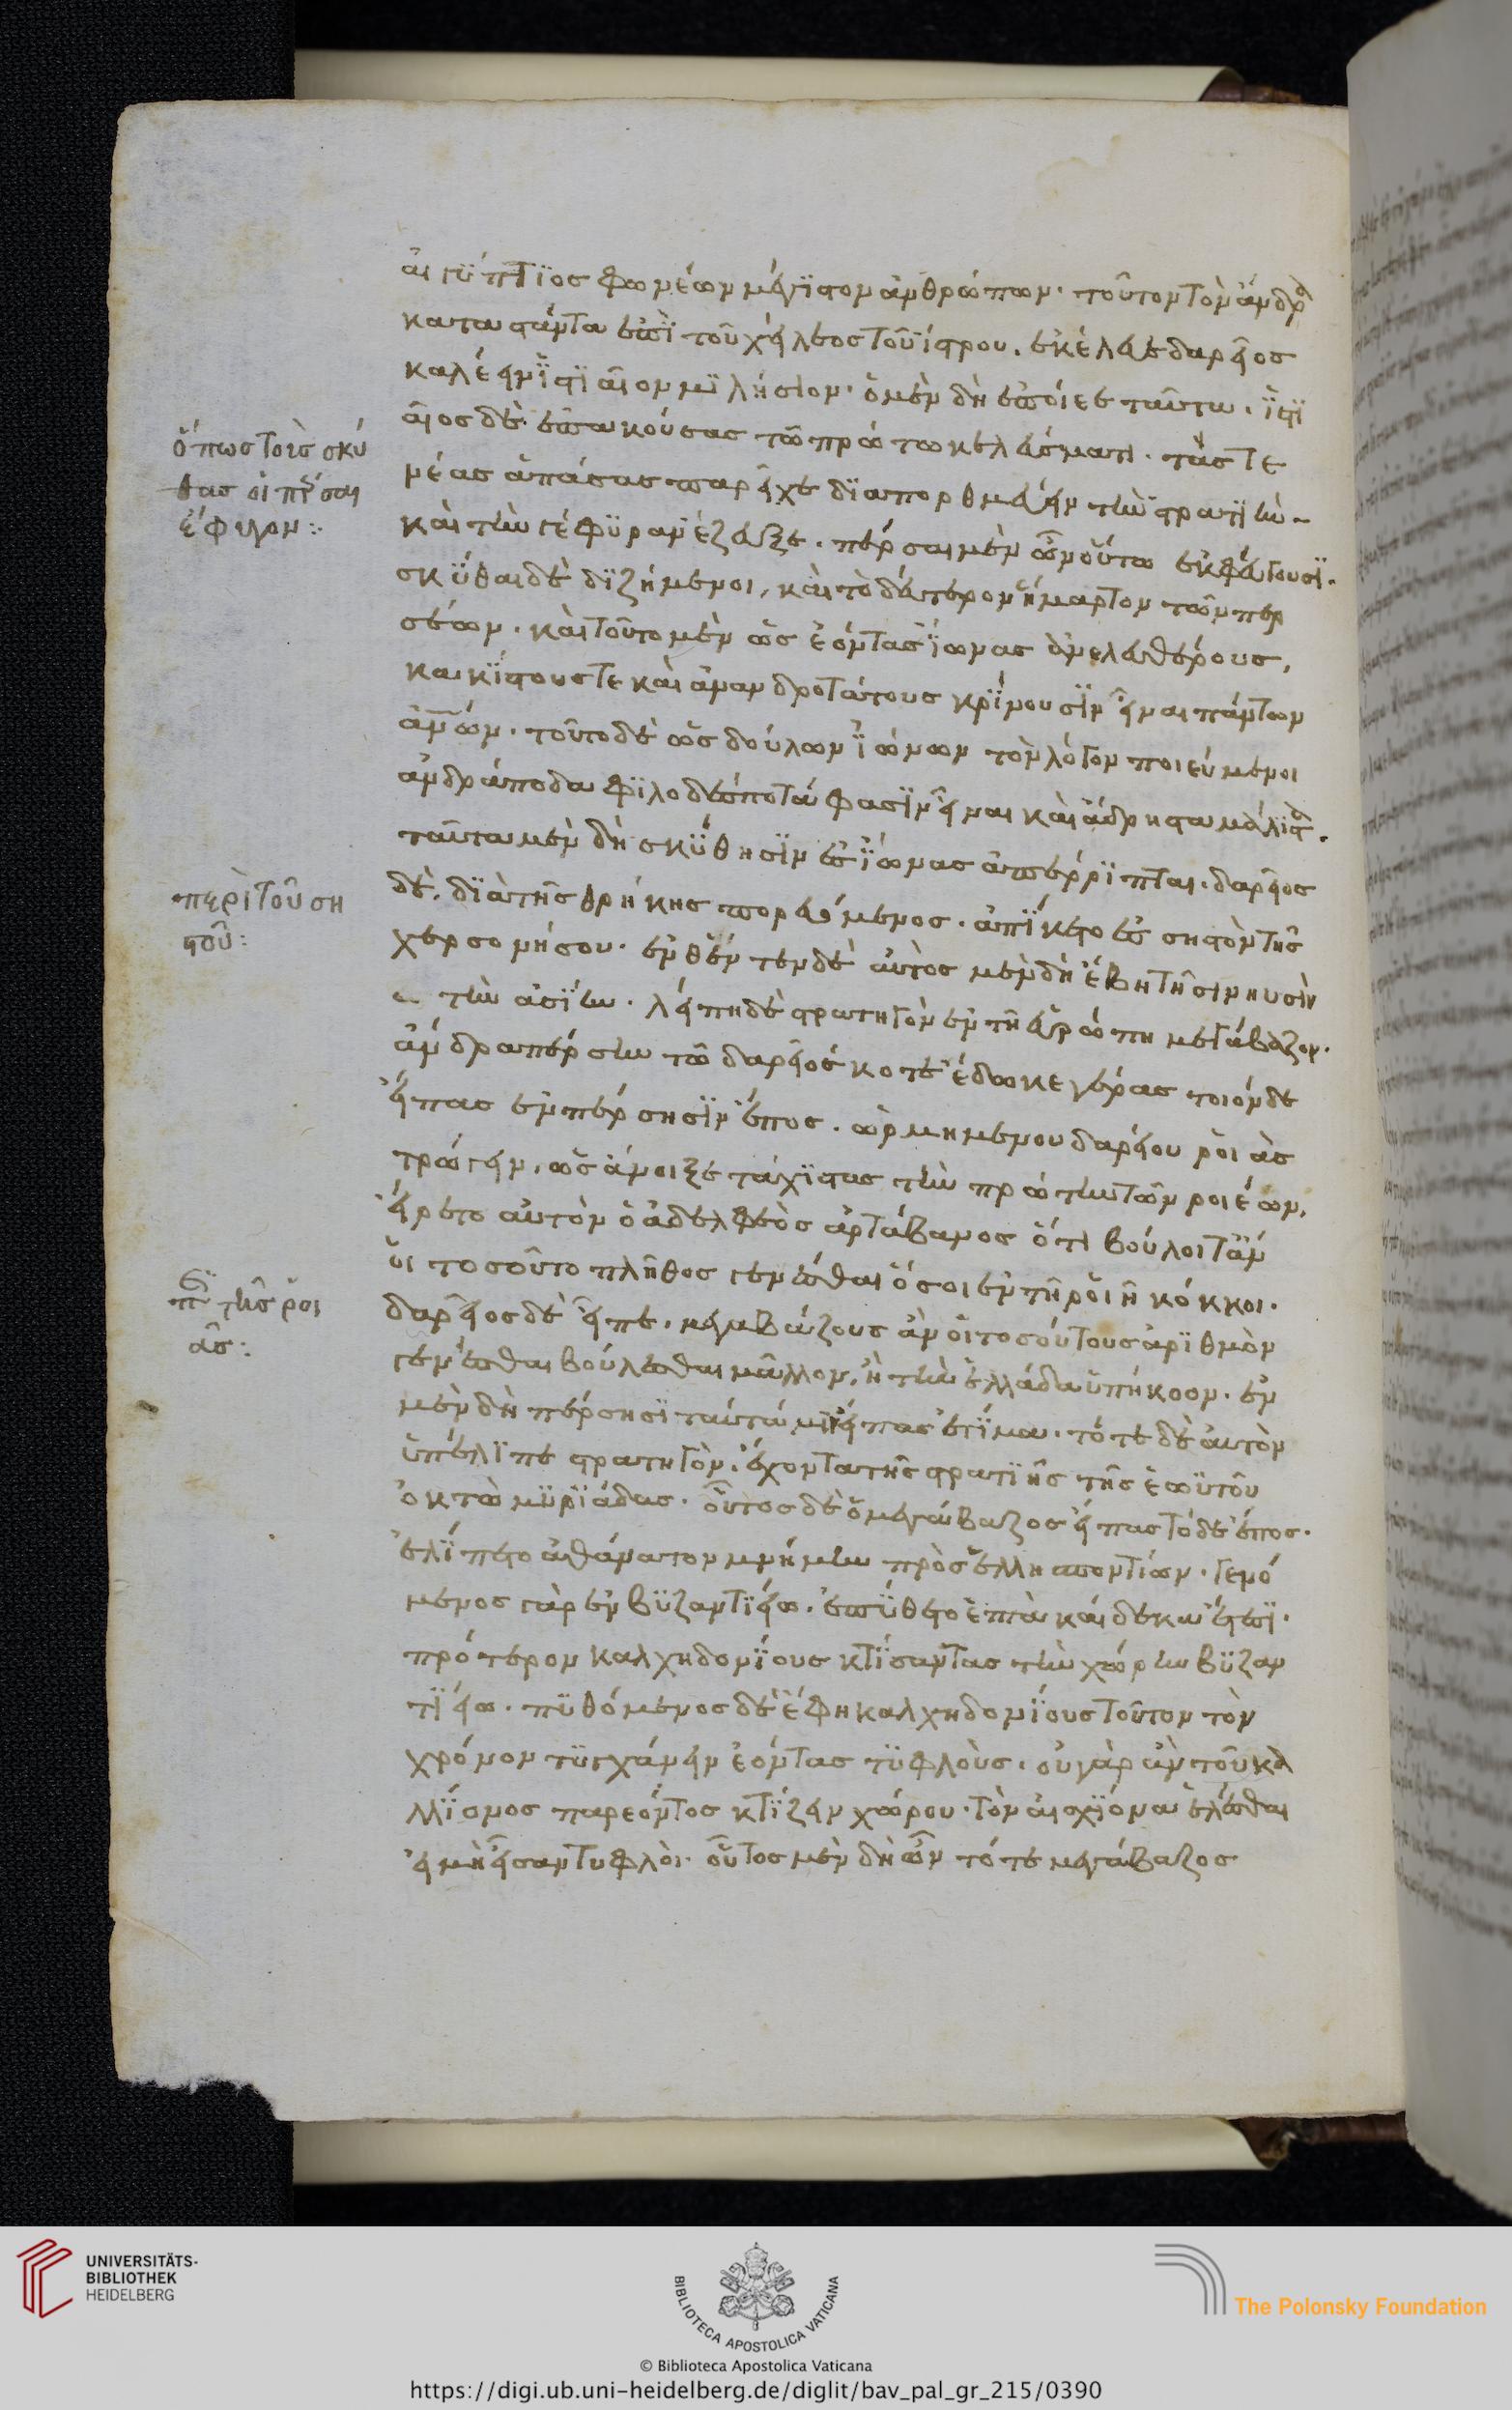 αἰγύπτϊος φωνέων μέγϊστον ἀνθρώπων· τοῦτον τὸν ἄνδρα
καταστάντα ἐπὶ τοῦ χείλεος τοῦ ἴστρου. ἐκέλευε δαρεῖος
καλέειν ϊστϊαῖον μϊλήσιον· ὁ μὲν δὴ ἐποίεε ταῦτα. ϊστϊ
αῖος δὲ ἐπακούσας τῶ πρώτω κελεύσματι. τάς τε
νέας ἁπάσας παρεῖχε δϊαπορθμεύειν τὴν στρατϊὴν
καὶ τὴν γέφϋραν ἔζευξε. πέρσαι μὲν ὦν οὕτω ἐκφεύγουσϊ.
σκϋθαι δὲ δϊζήμενοι, καὶ τὸ δεύτερον ἥμαρτον τῶν περ
σέων. καὶ τοῦτο μὲν ὡς ἐόντας ἴωνας ἀνελευθέρους,
κακίστους τε καὶ ἀνανδροτάτους κρίνουσϊν εἶναι πάντων
ἀνων. τοῦτο δὲ ὡς δούλων ϊώνων τὸν λόγον ποιεύμενοι
ἀνδράποδα φϊλοδέσποτά φασϊν εἶναι καὶ ἄδρηστα μάλιστα.
ταῦτα μὲν δὴ σκύθησϊν ἐς ϊωνας ἀπέρρϊπται. δαρεῖος
δὲ. δϊὰ τῆς θρήκης πορευόμενος. ἀπίκετο ἐς σηστὸν τῆς
χερσονήσου. ἐνθεῦτεν δὲ αὐτὸς μὲν δὴ ἔβη τῆσι νηυσὶν
ἐς τὴν ἀσϊην. λείπει δὲ στρατηγὸν ἐν τῆ εὐρώπη μεγάβαζον.
ἄνδρα πέρσην τῶ δαρεῖος κοτε ἔδωκε γέρας τοιόνδε
εἴπας ἐν πέρσησϊν ἔπος. ὡρμημένου δαρείου ῥοιὰς
τρώγειν, ὡς ἄνοιξε τάχϊστας τὴν πρώτην τῶν ροιέων,
εἴρετο αὐτὸν ὁ ἀδελφεὸς ἀρτάβανος ὅτι βούλοιτ ἄν
οἱ τοσοῦτο πλῆθος γενέσθαι ὅσοι ἐν τῆ ῥοιῆ κόκκοι.
δαρεῖος δὲ εἶπε. μεγαβάζους ἂν οἱ τοσούτους ἀρϊθμὸν
γενέσθαι βούλεσθαι μᾶλλον, ἢ τὴν ἑλλάδα ὑπήκοον. ἐν
μὲν δὴ πέρσησϊ ταῦτά μϊν εἴπας ἐτίμα. τότε δὲ αὐτὸν
ὑπέλϊπε στρατηγὸν, ἔχοντα τῆς στρατϊῆς τῆς ἑωϋτοῦ
ὀκτὼ μϋρϊάδας. οὗτος δὲ ὁ μεγάβαζος εἴπας τόδε ἔπος.
ἐλίπετο ἀθάνατον μνήμην πρὸς ἑλλησποντίων. γενό
μενος γὰρ ἐν βϋζαντϊείω. ἐπύθετο ἑπτακαίδεκα ἔτεσϊ.
πρότερον καλχηδονίους κτίσαντας τὴν χώρην βϋζαν
τϊείω. πϋθόμενος δὲ ἔφη καλχηδονίους τοῦτον τὸν
χρόνον τϋγχάνειν ἐόντας τϋφλοὺς. οὐ γὰρ ἂν τοῦ καλ
λϊονος παρεόντος κτϊζειν χώρου. τὸν αἰσχίονα ἑλέσθαι
εἰ μὴ εἶσαν τυφλοὶ· οὗτος μὲν δὴ ὦν τότε μεγάβαζος
ὅπως τοὺς σκύ
θας οἱ πέρσαι
ἔφυγον:
περὶ τοῦ ση
στοῦ:
περὶ τῆς ῥοι
ᾶς:
UNIVERSITÄTS-
BIBLIOTHEK
HEIDELBERG
BIBLIOTECA APOSTOLICA VATICANA
© Biblioteca Apostolica Vaticana
The Polonsky Foundation
https://digi.ub.uni-heidelberg.de/diglit/bav_pal_gr_215/0390